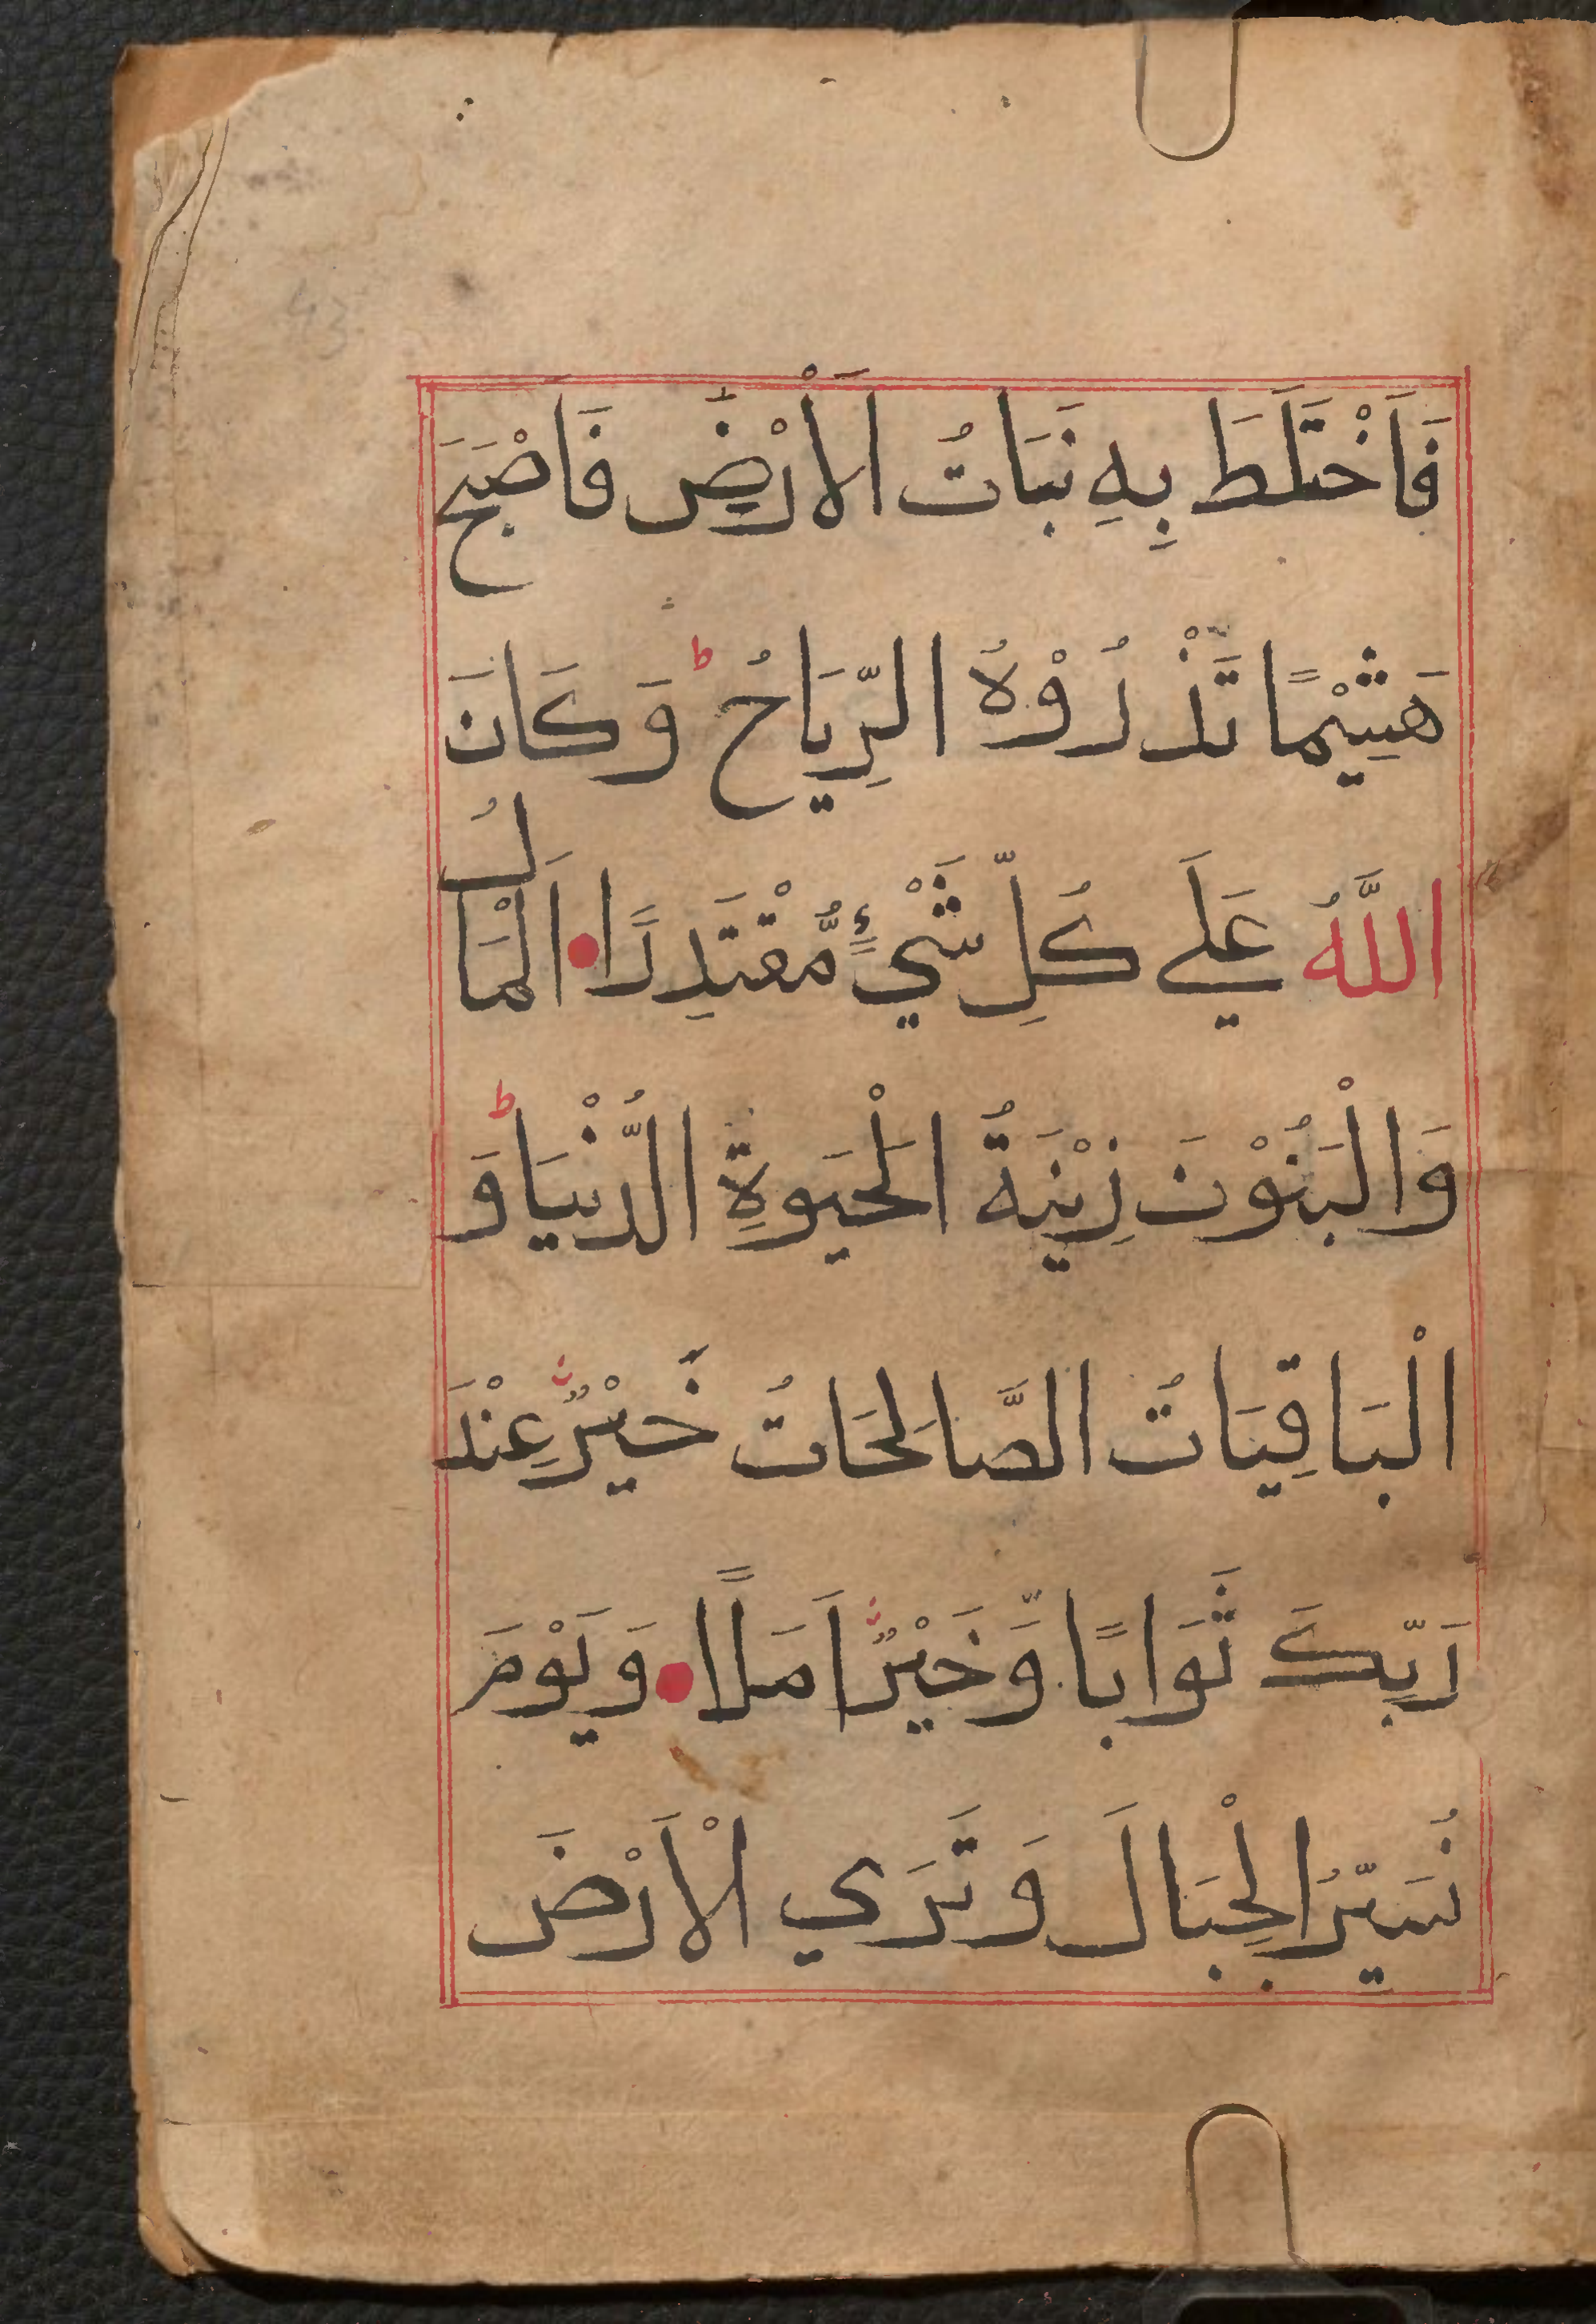 فَاَخْتَلَطَ بِهِ نَبَاتُ الَاْرْضِ فَاَصْبَحَ
هَشِيْمًا تَذْرُوْهُ الرِّيَاحُ ط وَكَانَ
اللَّهُ عَلَے كُلِّ شَيْءٍ مُّقْتَدِرًا اَلْمَالُ
وَالْبَنُوْنَ زِيْنَةُ الْحَيَوةِ الدُّنْيَا ط وَ
الْبَاقِيَاتُ الصَّالِحَاتُ خَيْرٌ عِنْدَ
رَبِّكَ ثَوَابًا وَّخَيْرٌ اَمَلًا وَيَوْمَ
نُسَيِّرُ الْجِبَالَ وَتَرَي الْاَرْضَ